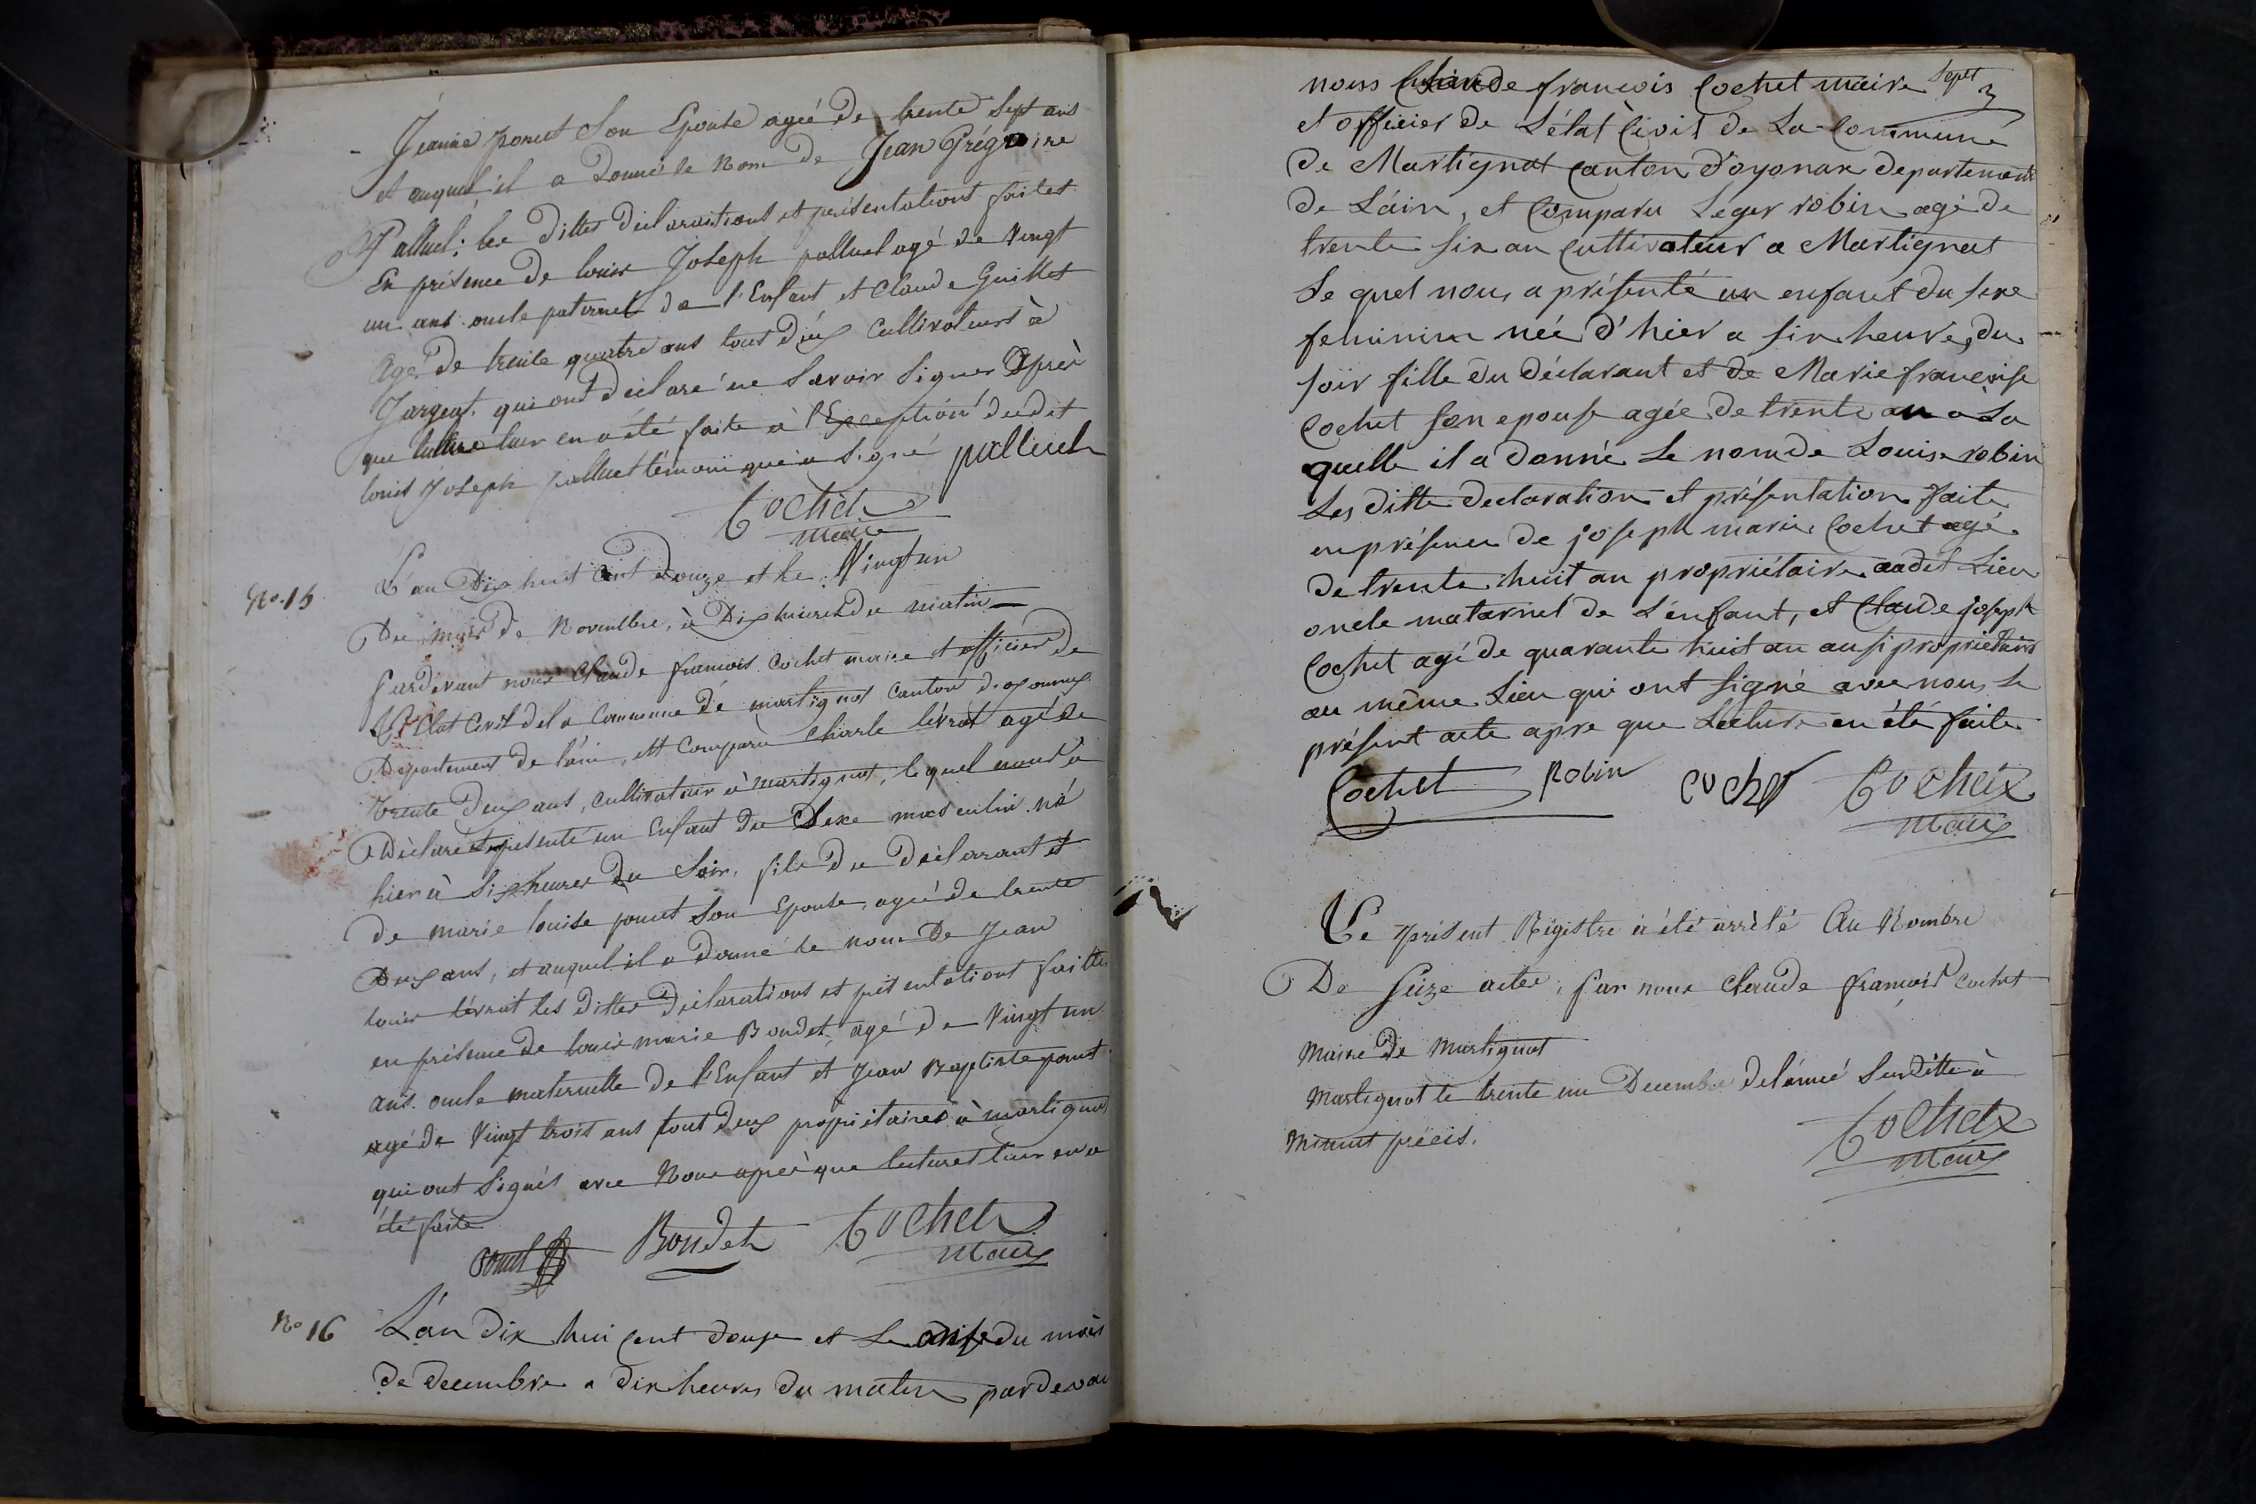 Jeanne poncet Son Epouse agée De trente Sept ans
et auquel, il a Donné le Nom de Jean Grégoire
Palluel; les dittes déclarations et présentations faites
En présence de louis Joseph palluel agé de Vingt
un ans oncle paternel de l'Enfant et Claude Guillet
Agé De trente quatre ans tous deux Cultivateurs à
qui ont Déclaré ne Savoir Signer Après
que lecture leur en a été faite à l'Exception dudit
louis Joseph palluel témoin qui a Signé palluel
Cochet
maire
No. 15
L'an Dix huit Cent Douze et le Vingt un
Du mois de Novembre, à Dix heures du matin
Pardevant nous Claude francois Cochet maire et officier de
L'Etat Civil de la Commune de martignat canton d'oyonnax
Département de l'ain, est Comparu Charle lévrat agé de
trente Deux ans, cultivateur à martignat, lequel nous a
Déclaré et présenté un Enfant du Sexe masculin né
hier à Six heures du Soir, fils du Déclarant et
de marie louise poncet Son Epouse, agé de trente
Deux ans, et auquel il a Donné le nom De Jean
louis lévrat les Dittes Déclarations et présentations faittes
en présence de louis marie Bondet, agé de Vingt un
ans oncle maternelle de l'Enfant et Jean Baptiste poncet
agé de Vingt trois ans tout deux propriétaires à martignat
qui ont Signés avec Nous après que lectures leur en a
été faite
poncet Bondet Cochet
maire
No 16
L'an dix hui cent douse et le onse du mois
de decembre a dix heures du matin pardevan
Sept
nous Claude francois Cochet maire
et officier de L'état Civil de La Commune
de Martignat canton d'oyonax departement
de L'ain, et Comparu Léger robin agé de
trente six an cultivateur a Martignat
Le quel nous a présenté un enfant du sexe
feminin née d'hier a six heures du
soir fille du déclarant et de Marie francoise
Cochet son epouse agée de trente an a La
quelle il a donné Le nom de Louise robin
Les ditte declaration et présentation faite
en présence de joseph marie Cochet agé
de trente huit an propriétaire audit Lieu
oncle matarnel de L'enfant, et Claude joseph
Cochet agé de quarante huit an ausi propriétaire
au même Lieu qui ont signé avec nous le
présent acte apre que Lecture en été faite
Cochet Robin cochet Cochet
maire
Le présent Régistre a été arrêté Au Nombre
De Seize actes, par nous Claude francois Cochet
Maire de Martignat
Martignat le trente un Decembre de l'année Susditte à
Minuit précis.
Cochet
maire